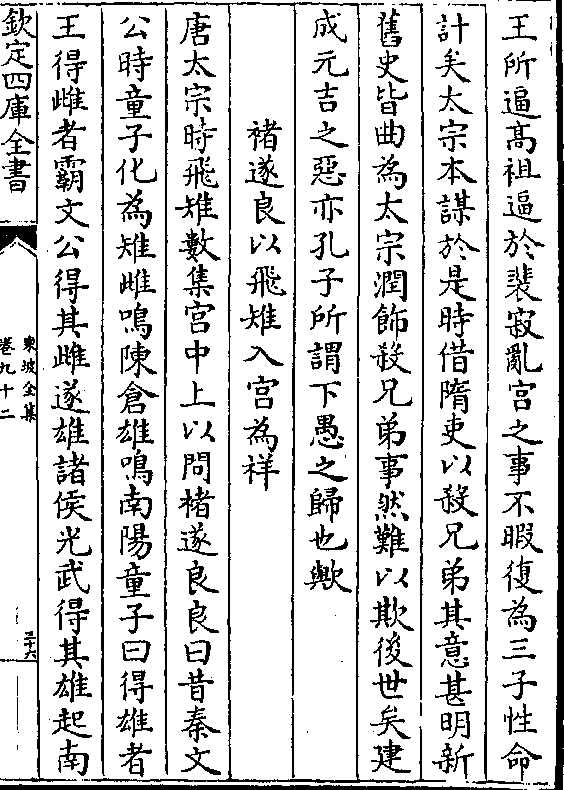 王所逼髙祖逼於裴寂亂宫之事不暇復為三子性命
計矣太宗本謀於是時借隋吏以殺兄弟其意甚明新
舊史皆曲為太宗潤飾殺兄弟事然難以欺後世矣建
成元吉之惡亦孔子所謂下愚之歸也歟
褚遂良以飛雉入宫為祥
唐太宗時飛雉數集宫中上以問褚遂良良曰昔秦文
公時童子化為雉雌鳴陳倉雄鳴南陽童子曰得雄者
王得雌者霸文公得其雌遂雄諸侯光武得其雄起南
欽定四庫全書
東坡全集
卷九十二
三十六